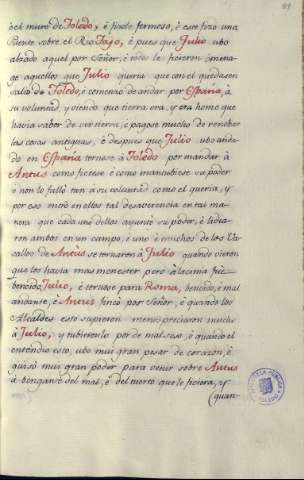 89
del muro de Toledo, è fizole fermoso, è este fizo una
Puente sobre el Rio Tajo, è pues que Julio ubo
alzado aquel por Señor, è todos le ficieron omena-
ge aquellos que Julio queria que con el quedasen
salio de Toledo, è comenzò de andar por España, à
su voluntad, y viendo que tierra era, y era home que
havia sabor de ver tierra, è pagose mucho de renobar
las cosas antiguas, è despues que Julio ubo anda-
do en España tornose à Toledo por mandar à
Antus como ficiese è como mantubiese su poder
è non lo fallò tan à su voluntad como el queria, y
por eso mito en ellos tal desaverencia en tal ma-
nera que cada uno dellos ayuntò su poder, è lidia-
ron ambos en un campo, è uno è muchos de los Va-
sallos de Antus se tornaron à Julio quando vieron
que les havia mas menester pero à la cima fue
bencido Julio, è tornose para Roma, bencido, è mal
andante, è Antus fincò por Señor, è quando los
Alcaldes esto sopieron menospreciaron mucho
à Julio, y tubieronlo por de mal seso, è quando el
entendio esto, ubo mui gran pesar de corazon, è
guisò mui gran poder para venir sobre Antus
à bengarse del mal, è del tuerto que le ficiera, y
(quan-
BIBLIOTECA PUBLICA
TOLEDO